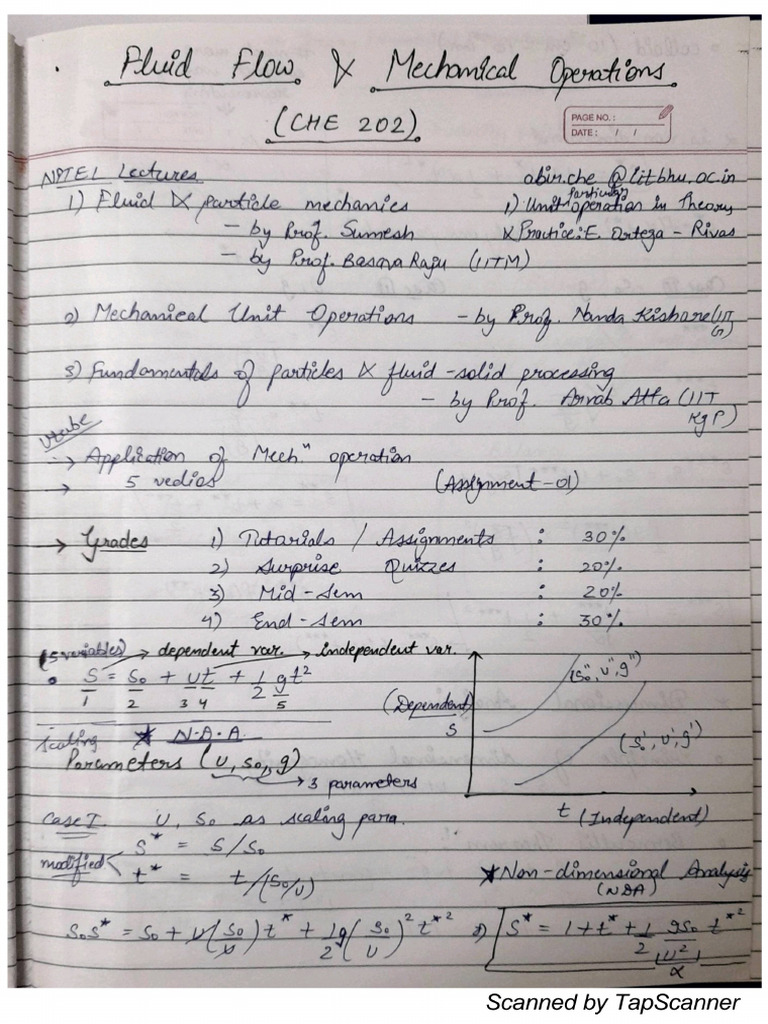 Fluid Flow & Mechanical Operations
(CHE 202)
PAGE NO.:
DATE: / /
NPTEL Lectures
abir.che @itbhu.ac.in
1) Fluid & particle mechanics
— by Prof. Sumesh
— by Prof. Basava Raju (IITM)
1) Unit operation in Theory
& Practice: E. Ortega - Rivas
2) Mechanical Unit Operations - by Prof. Nanda Kishore (IIT
G)
3) Fundamentals of particles & fluid-solid processing
— by Prof. Arnab Atta (IIT
KgP)
Utube
→ Application of Mechⁿ operation
→ 5 vedios (Assignment-01)
→ Grades 1) Tutorials / Assignments : 30%
2) Surprise Quizzes : 20%
3) Mid-Sem : 20%
4) End-Sem : 30%
(5 variables) → dependent var. → independent var.
• S = S₀ + Ut + 1/2 gt²
1 2 3 4 5
(Dependent)
S
(S₀", U", g")
(S₀', U', g')
t (Independent)
Scaling ★ N.D.A.
Parameters (U, S₀, g)
→ 3 parameters
Case I U, S₀ as scaling para.
modified S* = S/S₀
t* = t/(S₀/U)
★ Non-dimensional Analysis
(NDA)
S₀S* = S₀ + U(S₀/U)t* + 1/2 g(S₀/U)² t*² ⇒ S* = 1 + t* + 1/2 gS₀/U² t*²
α
Scanned by TapScanner